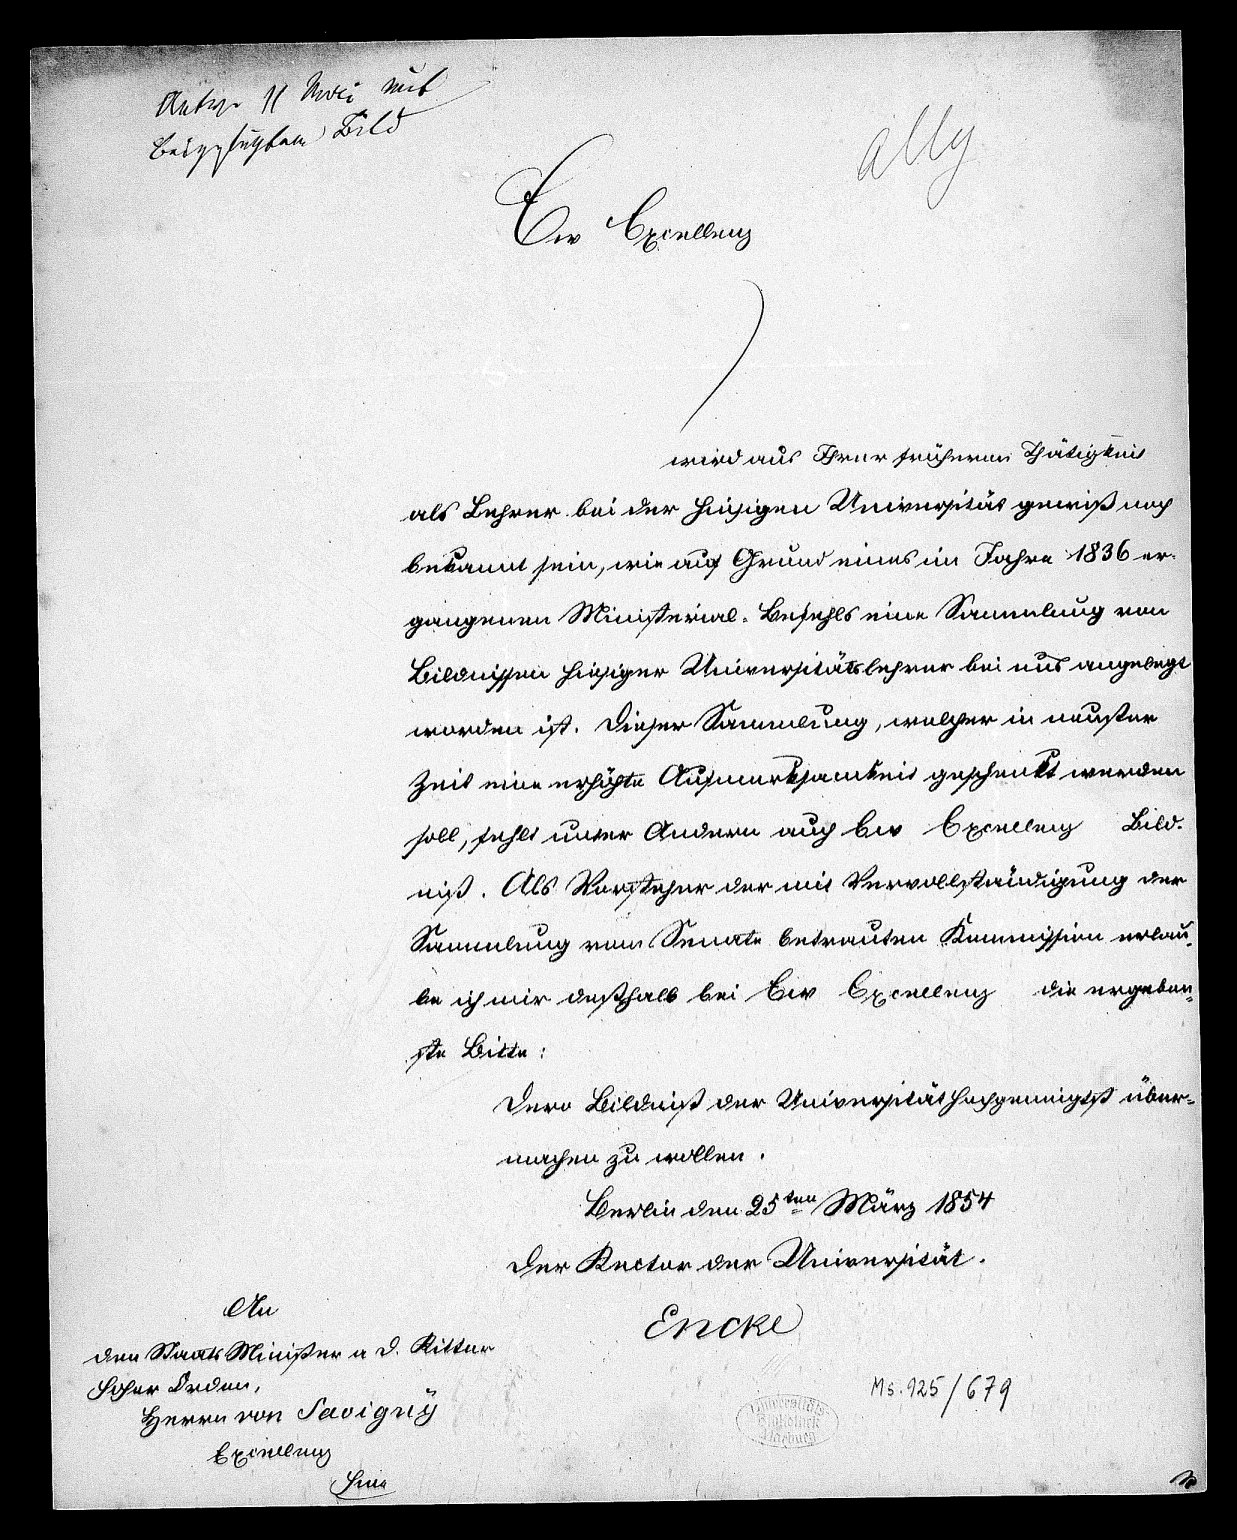 Antw. 11 Mai mit
beigefügtem Bild
Ew Excellenz
wird aus Ihrer früheren Thätigkeit
als Lehrer bei der hiesigen Universität gewiß noch
bekannt sein, wie auf Grund eines im Jahre 1836 er-
gangenen Ministerial-Befehls eine Sammlung von
Bildnissen hiesiger Universitätslehrer bei uns angelegt
worden ist. Dieser Sammlung, welcher in neuster
Zeit eine erhöhte Aufmerksamkeit geschenkt werden
soll, fehlt unter Andern auch Ew Excellenz Bild-
niß. Als Vorsteher der mit Vervollständigung der
Sammlung vom Senate betrauten Kommission erlau-
be ich mir deßhalb bei Ew Excellenz die ergeben-
ste Bitte:
Dero Bildniß der Universität hochgeneigtst über-
machen zu wollen.
Berlin den 25ten März 1854
Der Rector der Universität.
Encke
An
den Staats Minister a. D. Ritter
hoher Orden,
Herrn von Savigny
Excellenz
hier
Ms. 925/679
Universitäts
Bibliothek
Marburg